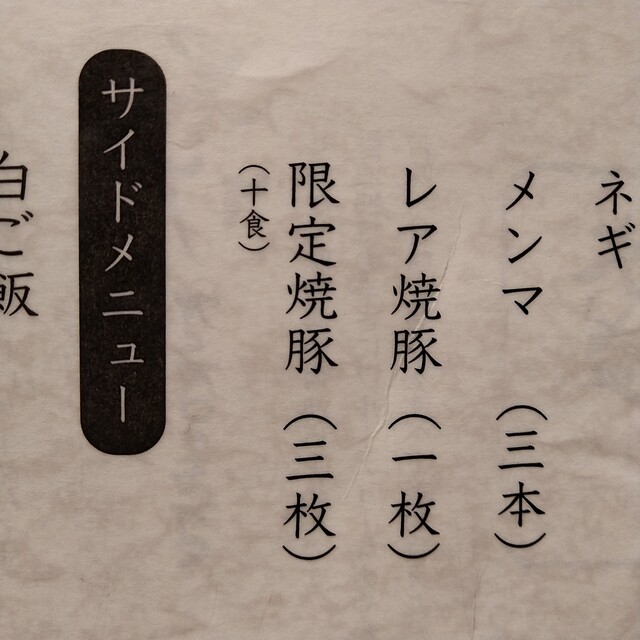 ネギ
メンマ（三本）
レア焼豚（一枚）
限定焼豚（三枚）
（十食）
サイドメニュー
白ご飯